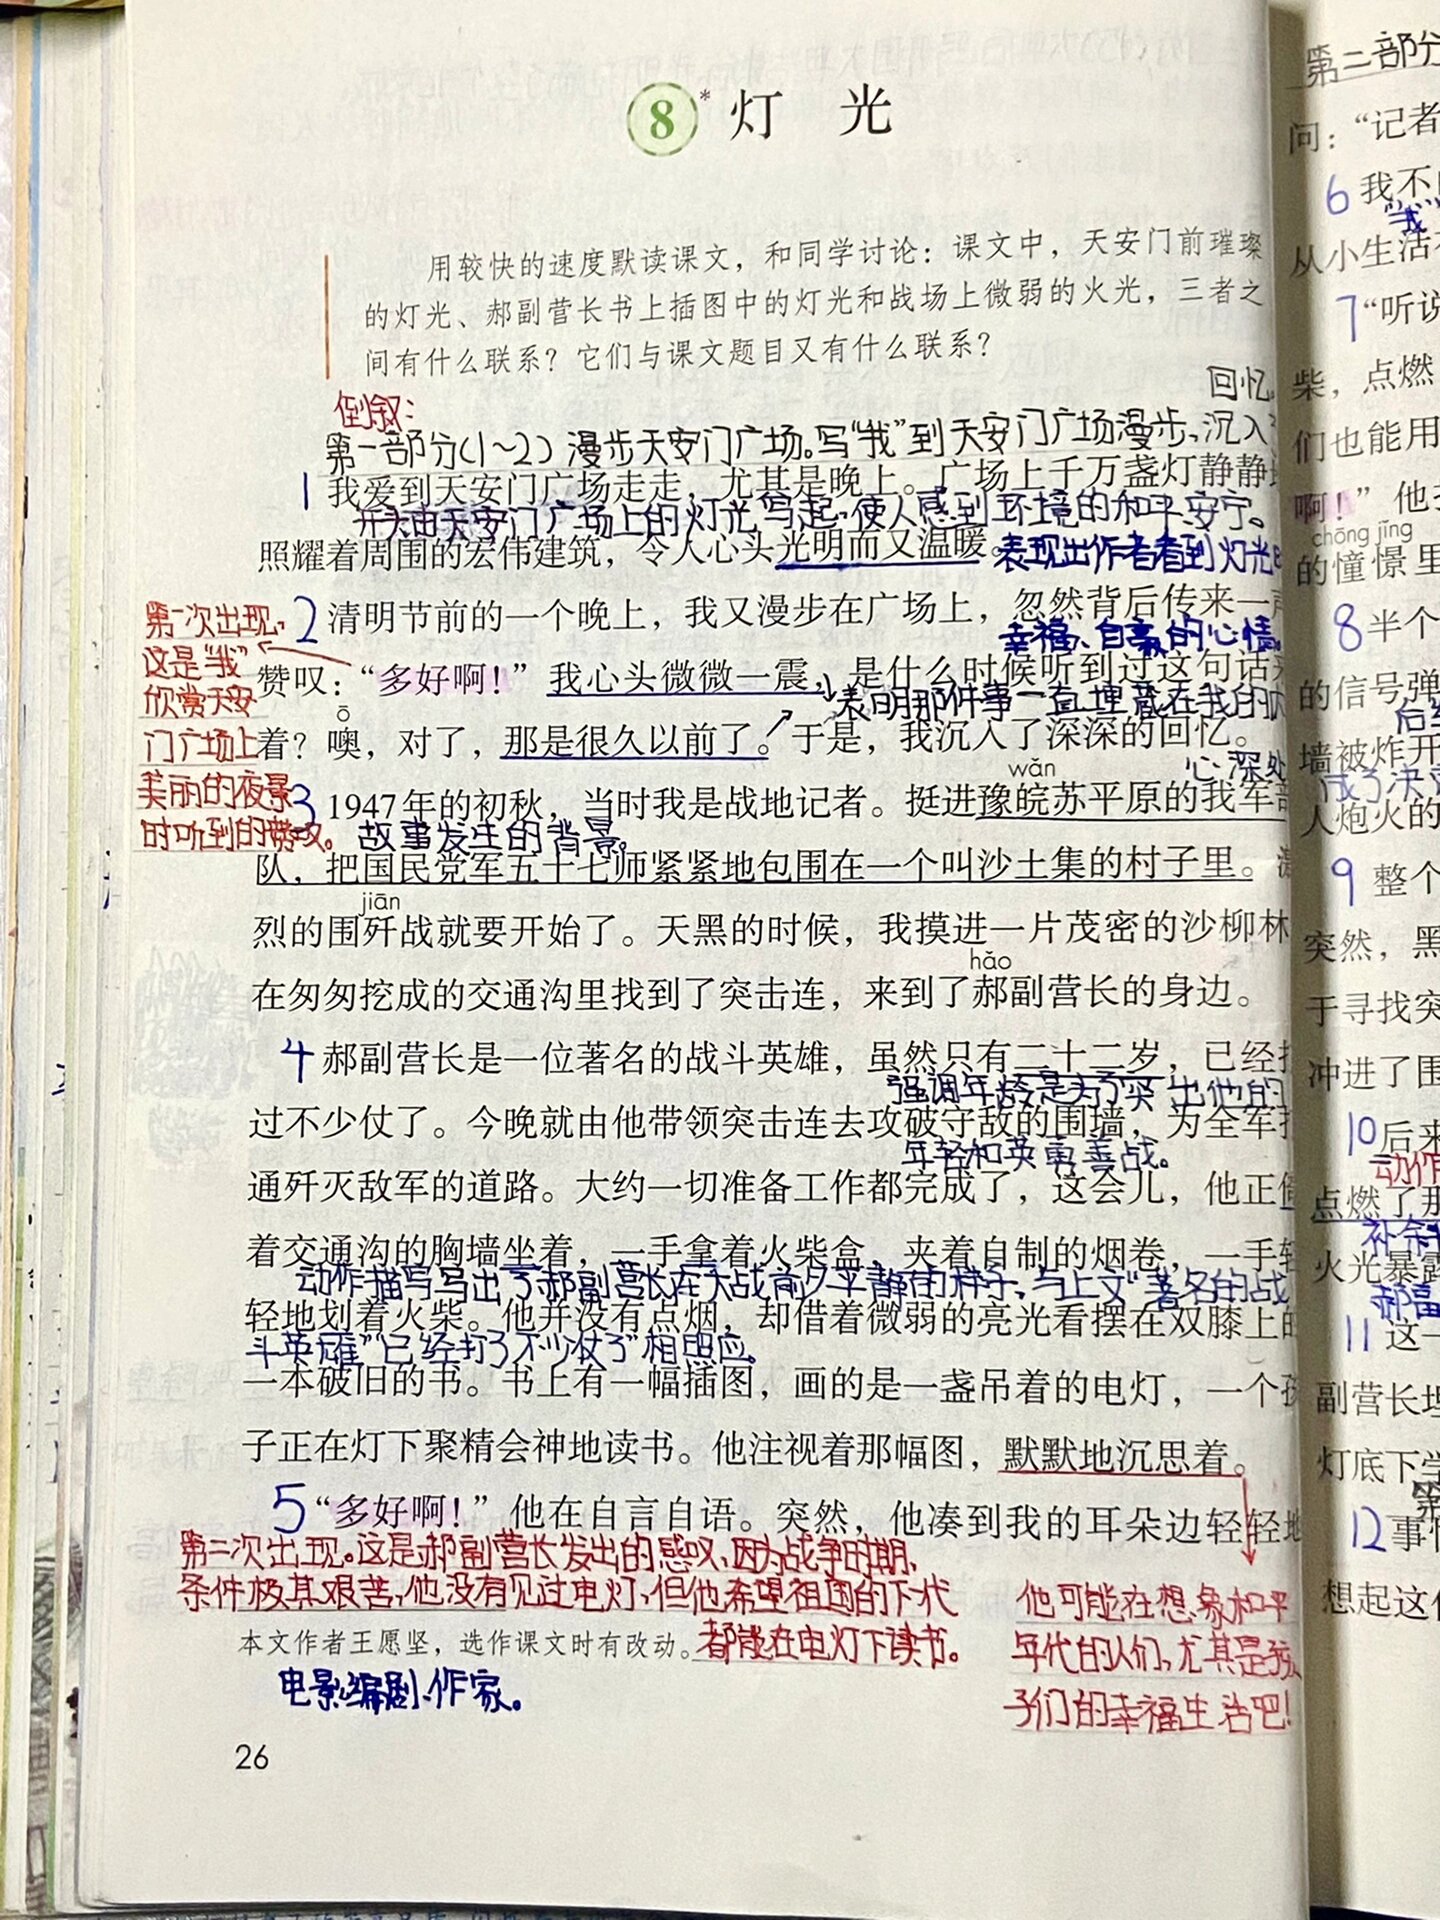 8* 灯 光
用较快的速度默读课文，和同学讨论：课文中，天安门前璀璨
的灯光、郝副营长书上插图中的灯光和战场上微弱的火光，三者之
间有什么联系？它们与课文题目又有什么联系？
回忆。
倒叙：
第一部分(1～2) 漫步天安门广场。写“我”到天安门广场漫步、沉入
1 我爱到天安门广场走走，尤其是晚上。广场上千万盏灯静静地
开头由天安门广场上的灯光写起，使人感到环境的和平、安宁。
照耀着周围的宏伟建筑，令人心头光明而又温暖。
表现出作者看到灯光时
2 清明节前的一个晚上，我又漫步在广场上，忽然背后传来一声
幸福、自豪的心情。
赞叹：“多好啊！”我心头微微一震，是什么时候听到过这句话来
表明那件事一直埋藏在我的内
ō
着？噢，对了，那是很久以前了。于是，我沉入了深深的回忆。
心深处
第一次出现，
这是“我”
欣赏天安
门广场上
美丽的夜景
时听到的赞叹。
wǎn
3 1947年的初秋，当时我是战地记者。挺进豫皖苏平原的我军部
故事发生的背景。
队，把国民党军五十七师紧紧地包围在一个叫沙土集的村子里。激
jiān
烈的围歼战就要开始了。天黑的时候，我摸进一片茂密的沙柳林
hǎo
在匆匆挖成的交通沟里找到了突击连，来到了郝副营长的身边。
4 郝副营长是一位著名的战斗英雄，虽然只有二十二岁，已经打
强调年龄是为了突出他的
过不少仗了。今晚就由他带领突击连去攻破守敌的围墙，为全军打
年轻和英勇善战。
通歼灭敌军的道路。大约一切准备工作都完成了，这会儿，他正倚
着交通沟的胸墙坐着，一手拿着火柴盒，夹着自制的烟卷，一手轻
动作描写写出了郝副营长在大战前夕平静的样子，与上文“著名的战
轻地划着火柴。他并没有点烟，却借着微弱的亮光看摆在双膝上的
斗英雄”“已经打了不少仗了”相照应。
一本破旧的书。书上有一幅插图，画的是一盏吊着的电灯，一个孩
子正在灯下聚精会神地读书。他注视着那幅图，默默地沉思着。
5 “多好啊！”他在自言自语。突然，他凑到我的耳朵边轻轻地
第二次出现。这是郝副营长发出的感叹，因为战争时期，
条件极其艰苦，他没有见过电灯，但他希望祖国的下代
都能在电灯下读书。
他可能在想象和平
年代的人们，尤其是孩
子们的幸福生活吧！
本文作者王愿坚，选作课文时有改动。
电影编剧、作家。
26
第二部分
问：“记者
6 我不
“我
从小生活在
7 “听说
柴，点燃
们也能用
啊！”他
chōng jǐng
的憧憬里
8 半个
的信号弹
墙被炸开
成了决
人炮火的
9 整个
突然，黑
于寻找突
冲进了围
10 后来
动作
点燃了那
补
火光暴露
郝副
11 这一
副营长埋
灯底下学
第
12 事情
想起这